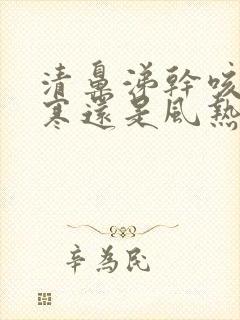 清鼻涕幹咳
寒還是風熱
辛為民